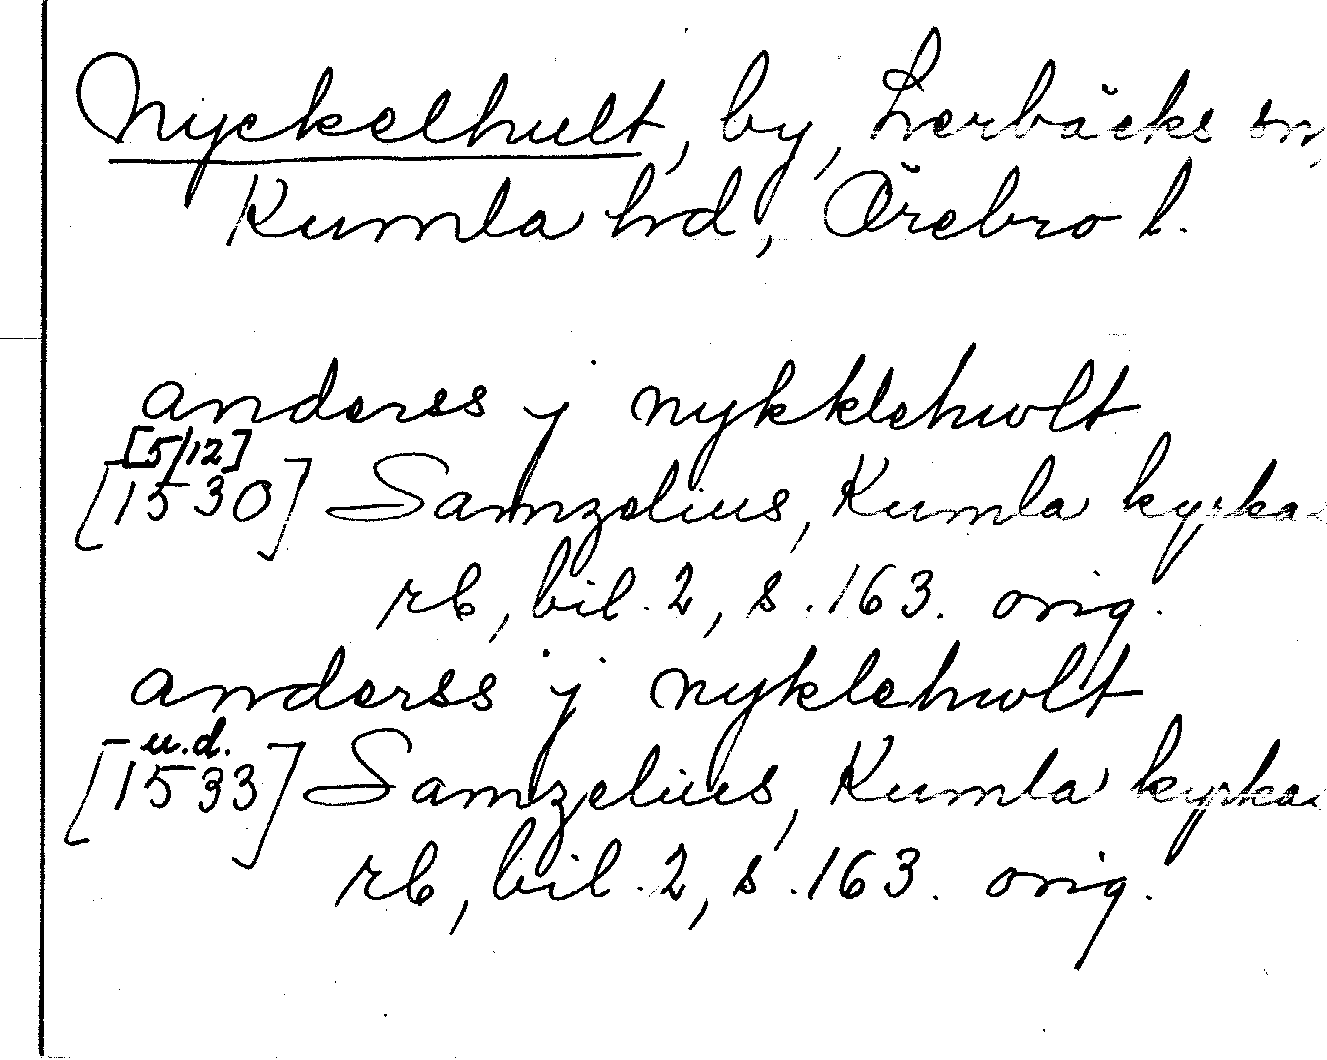 Nyckelhult, by, Lerbäcks sn,
Kumla hd, Örebro l.
anderss j nykklehwlt
[5/12]
[1530] Samzelius, Kumla kyrka-
rb, bil. 2, s. 163. orig.
anderss j nyklehwlt
u.d.
[1533] Samzelius, Kumla kyrka-
rb, bil. 2, s. 163. orig.